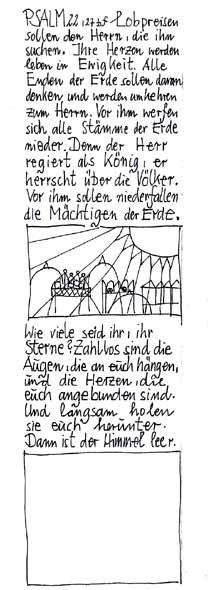 PSALM 22,27ff Lobpreisen
sollen den Herrn, die ihn
suchen. Ihre Herzen werden
leben in Ewigkeit. Alle
Enden der Erde sollen daran
denken und werden umkehren
zum Herrn. Vor ihm werfen
sich alle Stämme der Erde
nieder. Denn der Herr
regiert als König, er
herrscht über die Völker.
Vor ihm sollen niederfallen
die Mächtigen der Erde.
Wie viele seid ihr, ihr
Sterne? Zahllos sind die
Augen, die an euch hängen,
und die Herzen, die
euch angebunden sind.
Und langsam holen
sie euch herunter.
Dann ist der Himmel leer.